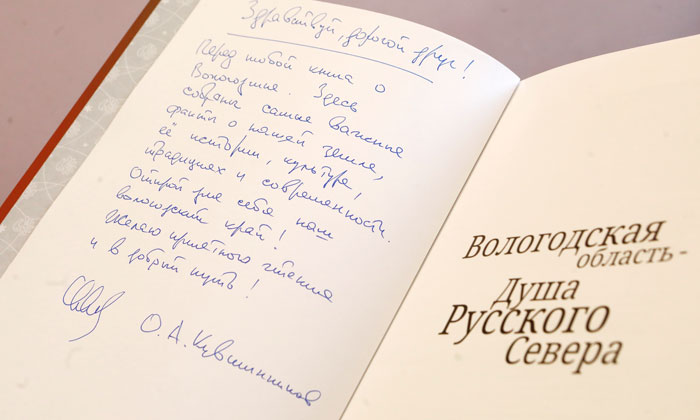 Здравствуй, дорогой друг!
Перед тобой книга о
Вологодчине. Здесь
собраны самые важные
факты о нашей земле,
её истории, культуре,
традициях и современности.
Открой для себя наш
вологодский край!
Желаю приятного чтения
и в добрый путь!
О. А. Кувшинников
Вологодская
область -
Душа
Русского
Севера